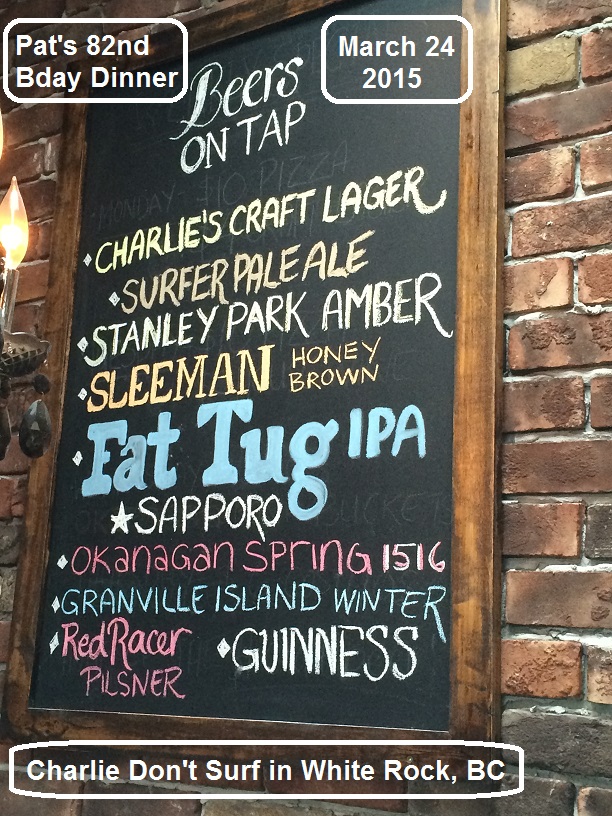 Pat's 82nd
Bday Dinner
March 24
2015
Beers
ON TAP
MONDAY- $10 PIZZA
CHARLIE'S CRAFT LAGER
SURFER PALE ALE
STANLEY PARK AMBER
SLEEMAN HONEY
BROWN
Fat Tug IPA
SAPPORO
BUCKETS
OKANAGAN SPRING 1516
GRANVILLE ISLAND WINTER
Red Racer
PILSNER
GUINNESS
Charlie Don't Surf in White Rock, BC